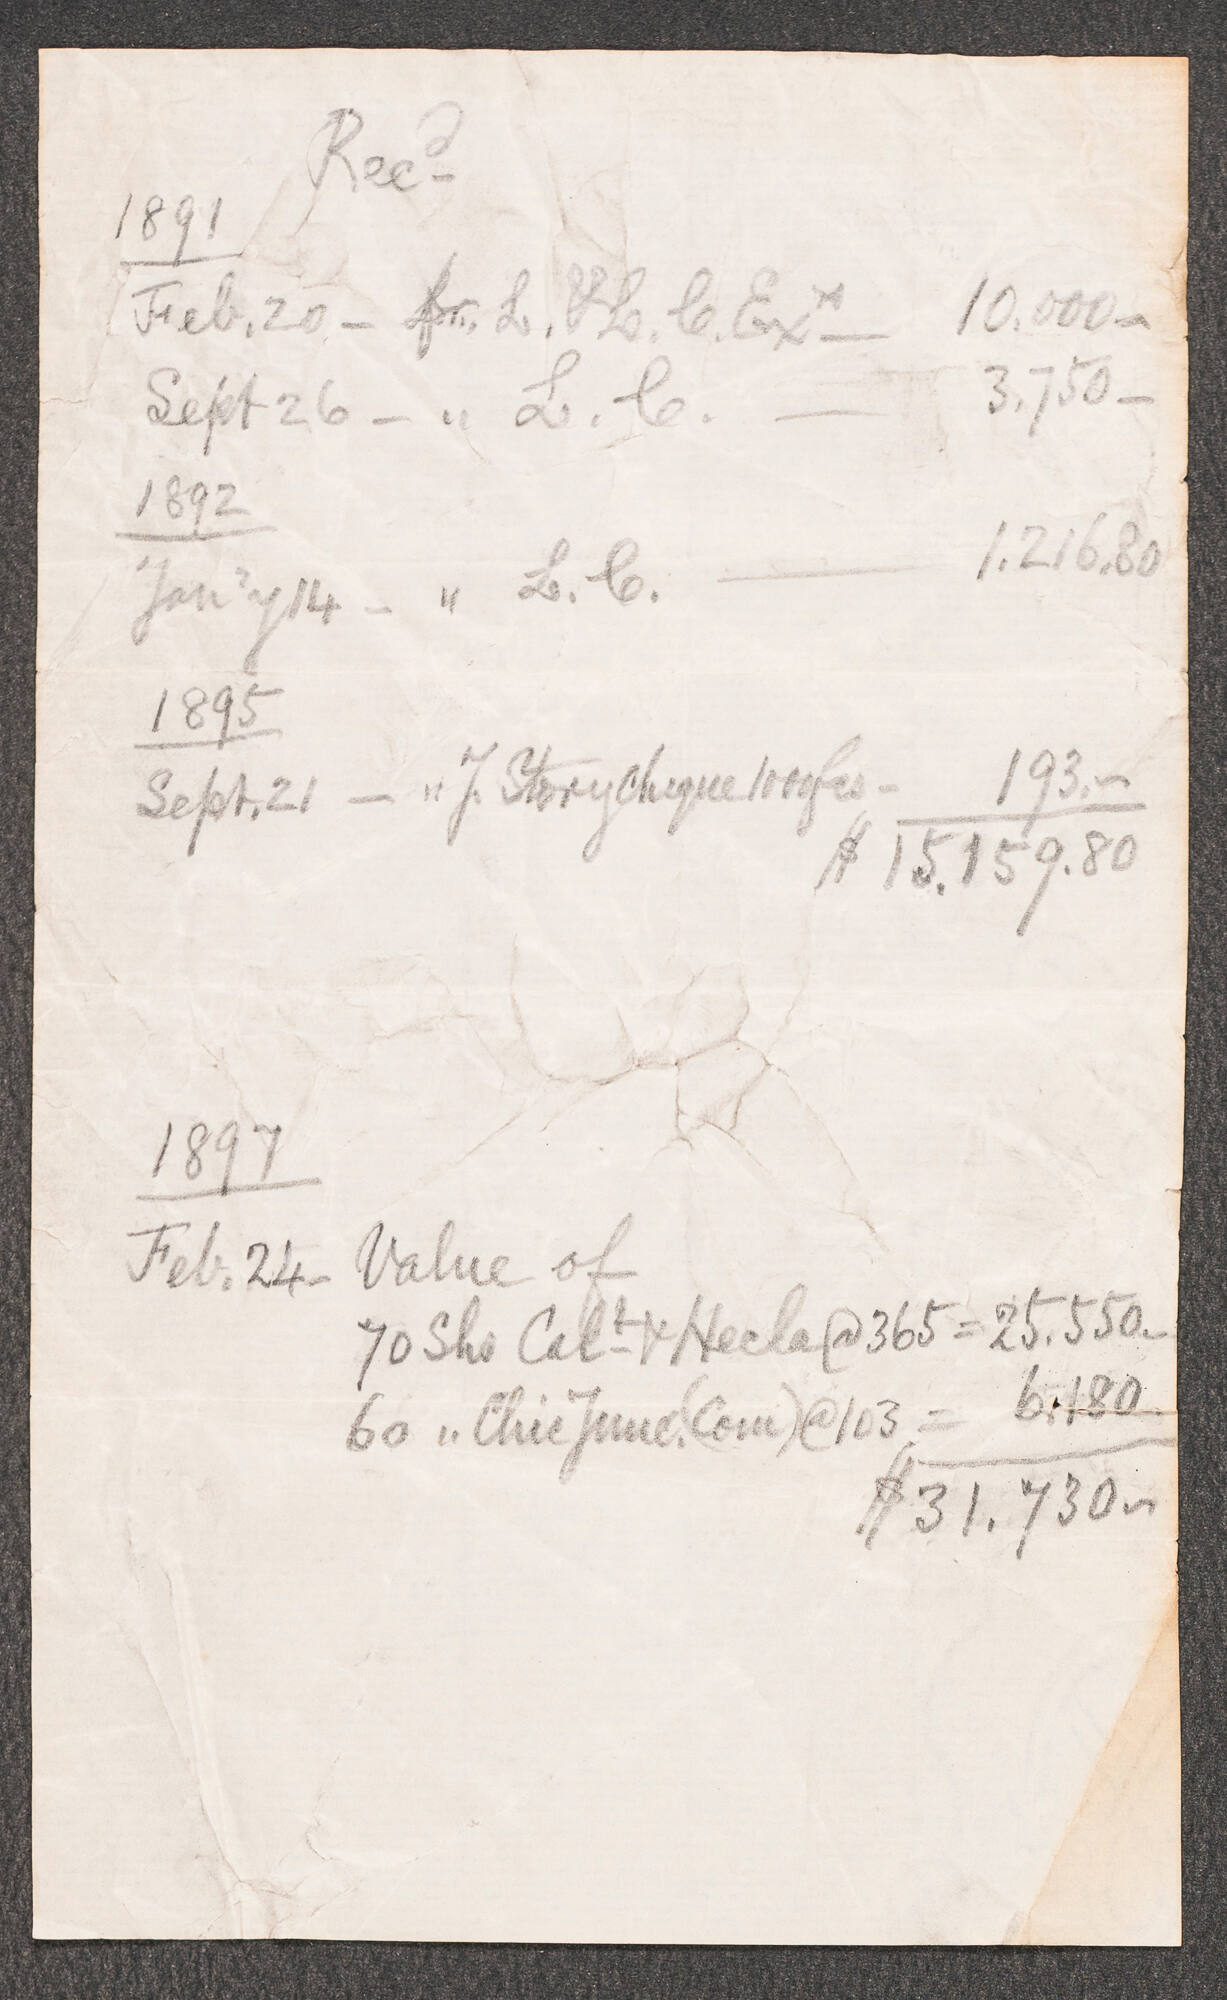 Recd
1891
Feb. 20 – fr. L. & L. C. Exrs — 10.000 –
Sept 26 – " L. C. — 3.750 –
1892
Jan'y 14 – " L. C. — 1.216.80
1895
Sept. 21 – " J. Story cheque 1000 fcs – 193. –
$ 15.159.80
1897
Feb. 24 – Value of
70 Shs Calt & Hecla @ 365 = 25.550 –
60 " Chic Junc. (Com) @ 103 = 6.180
$ 31.730 –